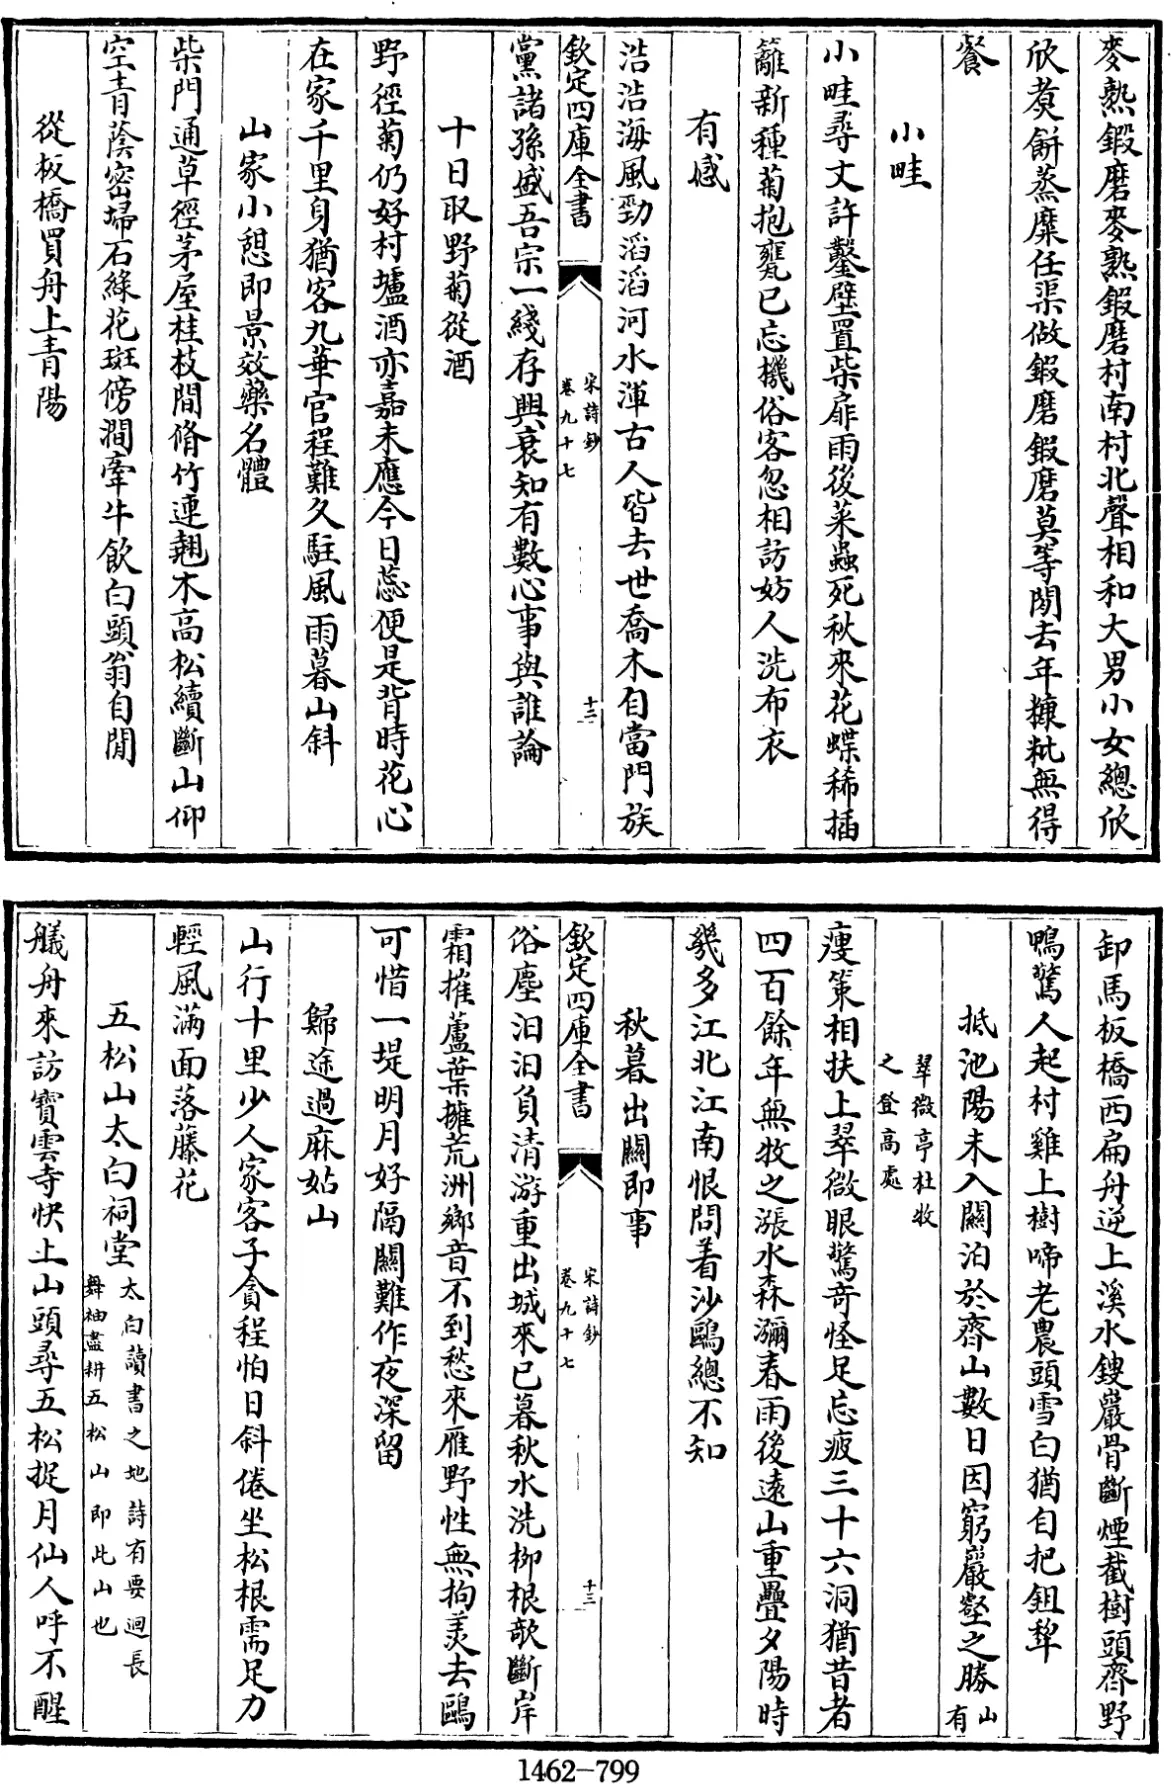 麥熟鍛磨麥熟鍛磨村南村北聲相和大男小女總欣
欣煑餅蒸糜任渠做鍛磨鍛磨莫等閒去年糠籺無得
餐
小畦
小畦尋丈許鑿壁置柴扉雨後菜蟲死秋來花蝶稀插
籬新種菊抱甕已忘機俗客忽相訪妨人洗布衣
有感
浩浩海風勁滔滔河水渾古人皆去世喬木自當門族
欽定四庫全書
宋詩鈔
卷九十七
十二
黨諸孫盛吾宗一綫存興衰知有數心事與誰論
十日取野菊從酒
野徑菊仍好村壚酒亦嘉未應今日蕊便是背時花心
在家千里身猶客九華官程難久駐風雨暮山斜
山家小憩即景效藥名體
柴門通草徑茅屋桂枝間脩竹連翹木高松續斷山仰
空青蔭密埽石綠花斑傍澗牽牛飲白頭翁自閒
從板橋買舟上青陽
卸馬板橋西扁舟逆上溪水鎪巖骨斷煙截樹頭齊野
鴨驚人起村雞上樹啼老農頭雪白猶自把鉏犂
抵池陽未入關泊於齊山數日因窮巖壑之勝山有
翠微亭杜牧之登高處
瘦策相扶上翠微眼驚奇怪足忘疲三十六洞猶昔者
四百餘年無牧之漲水森瀰春雨後遠山重疊夕陽時
幾多江北江南恨問着沙鷗總不知
秋暮出關即事
欽定四庫全書
宋詩鈔
卷九十七
十三
俗塵汩汩負清游重出城來已暮秋水洗栁根欹斷岸
霜摧蘆葉擁荒洲鄉音不到愁來雁野性無拘羡去鷗
可惜一堤明月好隔關難作夜深留
歸途過麻姑山
山行十里少人家客子貪程怕日斜倦坐松根需足力
輕風滿面落藤花
五松山太白祠堂太白讀書之地詩有要迴長舞袖盡耕五松山即此山也
艤舟來訪寶雲寺快上山頭尋五松捉月仙人呼不醒
1462-799